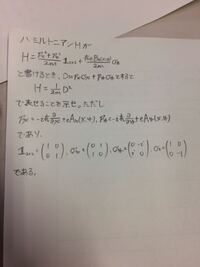 ハミルトニアンHが
H = (px²+py²)/2m 1₂ₓ₂ + σz
と書けるとき, D=pxσx+pyσyとすると
H = 1/2m D²
で表せることを示せ。ただし
px=-iℏ ∂/∂x +eAx(x,y), py=-iℏ ∂/∂y +eAy(x,y)
であり,
1₂ₓ₂=(1 0 0 1), σx=(0 1 1 0), σy=(0 -i i 0), σz=(1 0 0 -1)
である。